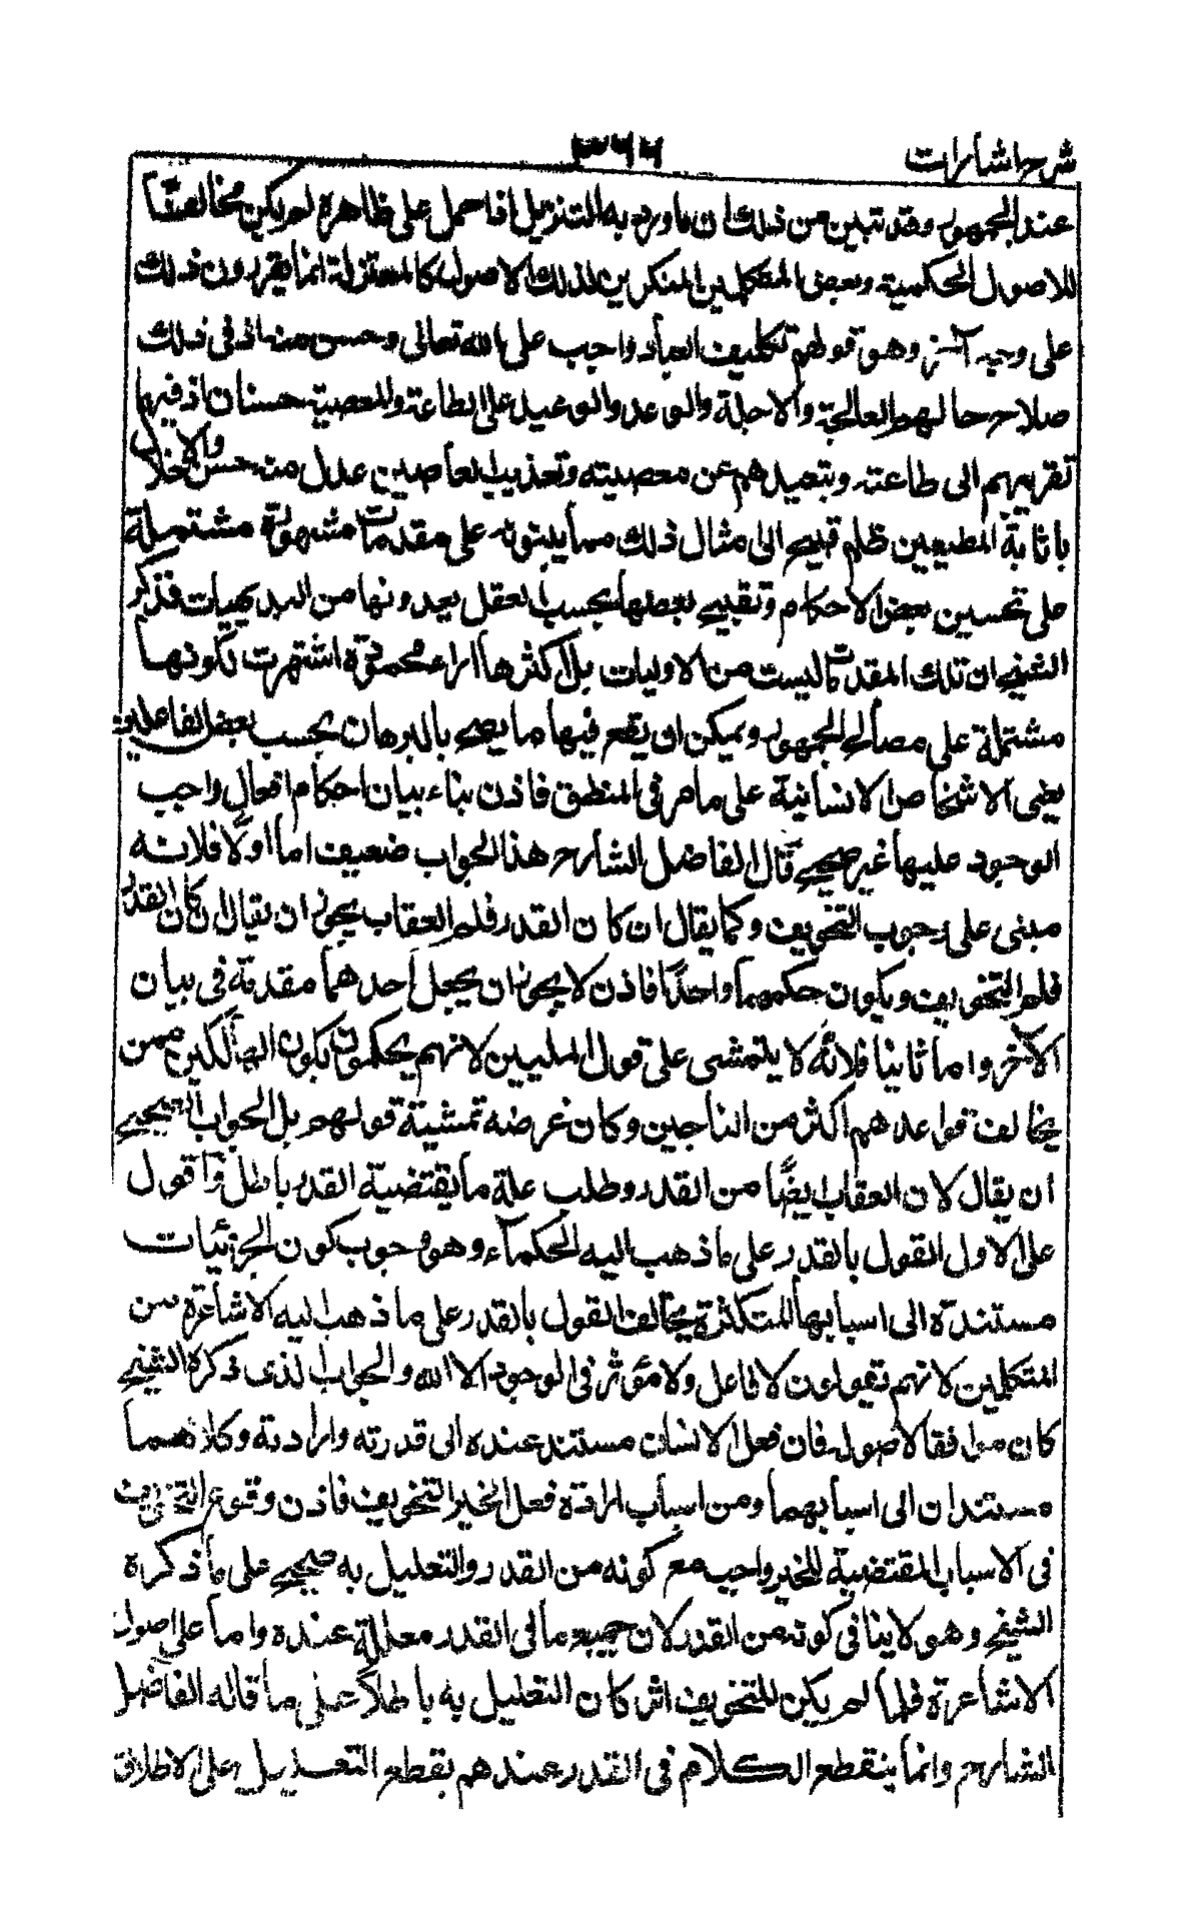 شرح اشارات
٣٦٦
عند الجمهور وقد تبين من ذلك ان ما ورد به التنزيل اذا حمل على ظاهره لم يكن مخالفا
للاصول الحكمية وبعض المتكلمين المنكرين لذلك الاصول كالمعتزلة انما يقررون ذلك
على وجه آخر وهو قولهم تكليف العباد واجب على الله تعالى وحسن منه اذ فى ذلك
صلاح حالهم العاجلة والاجلة والوعد والوعيد على الطاعة والمعصية حسنان اذ فيهما
تقريبهم الى طاعته وتبعيدهم عن معصيته وتعذيب العاصين عدل منه حسن والاخلال
باثابة المطيعين ظلم قبيح الى امثال ذلك مما يبنونه على مقدمات مشهورة مشتملة
على تحسين بعض الاحكام وتقبيح بعضها بحسب العقل يعدونها من البديهيات فذكر
الشيخ ان تلك المقدمات ليست من الاوليات بل اكثرها اراء محمودة اشتهرت لكونها
مشتملة على مصالح الجمهور ويمكن ان يقع فيها ما يصح بالبرهان بحسب بعض الفاعلين
يعنى الاشخاص الانسانية على ما مر فى المنطق فاذن بناء بيان احكام افعال واجب
الوجود عليها غير صحيح قال الفاضل الشارح هذا الجواب ضعيف اما اولا فلانه
مبنى على وجوب التخويف وكما يقال ان كان القدر فلم العقاب يجوز ان يقال ان كان القدر
فلم التخويف ويكون حكمهما واحدا فاذن لا يجوز ان يجعل احدهما مقدمة فى بيان
الآخر واما ثانيا فلانه لا يتمشى على قول المليين لانهم يحكمون بكون الهالكين ممن
يخالف قواعدهم اكثر من الناجين وكان غرضه تمشية قولهم بل الجواب الصحيح
ان يقال لان العقاب ايضا من القدر وطلب علة ما يقتضيه القدر باطل واقول
على الاول القول بالقدر على ما ذهب اليه الحكماء وهو وجوب كون الجزئيات
مستندة الى اسبابها المتكثرة يخالف القول بالقدر على ما ذهب اليه الاشاعرة من
المتكلمين لانهم يقولون لا فاعل ولا مؤثر فى الوجود الا الله والجواب الذى ذكره الشيخ
كان موافقا لاصوله فان فعل الانسان مستند عنده الى قدرته وارادته وكلاهما
مستندان الى اسبابهما ومن اسباب ارادة فعل الخير التخويف فاذن وقوع التخويف
فى الاسباب المقتضية للخير واجب مع كونه من القدر والتعليل به صحيح على ما ذكره
الشيخ وهو لا ينافى كونه من القدر لان جميع ما فى القدر معللة عنده واما على اصول
الاشاعرة فلما لم يكن للتخويف اثر كان التعليل به باطلا على ما قاله الفاضل
الشارح وانما ينقطع الكلام فى القدر عندهم بقطع التعليل على الاطلاق